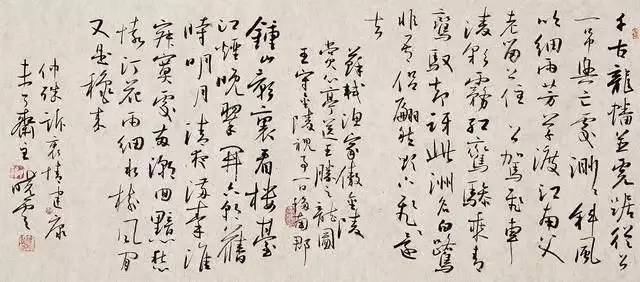 千古龍蟠並虎踞從公
一弔興亡處渺渺斜風
吹細雨芳草渡江南父
老留公住公駕飛車
凌彩霧紅鸞驂乘青
鸞馭却訝此洲名白鷺
非吾侶翩然欲下飛還
去
蘇軾漁家傲金陵
賞心亭送王勝之龍圖
王守金陵視事一日移南郡
鍾山影裏看樓臺
江煙晚翠開六朝舊
時明月清夜滿秦淮
寂寞處兩潮回黯愁
懷汀花雨細水樹風閒
又是秋來
仲殊訴衷情建康
未了齋主曉雲